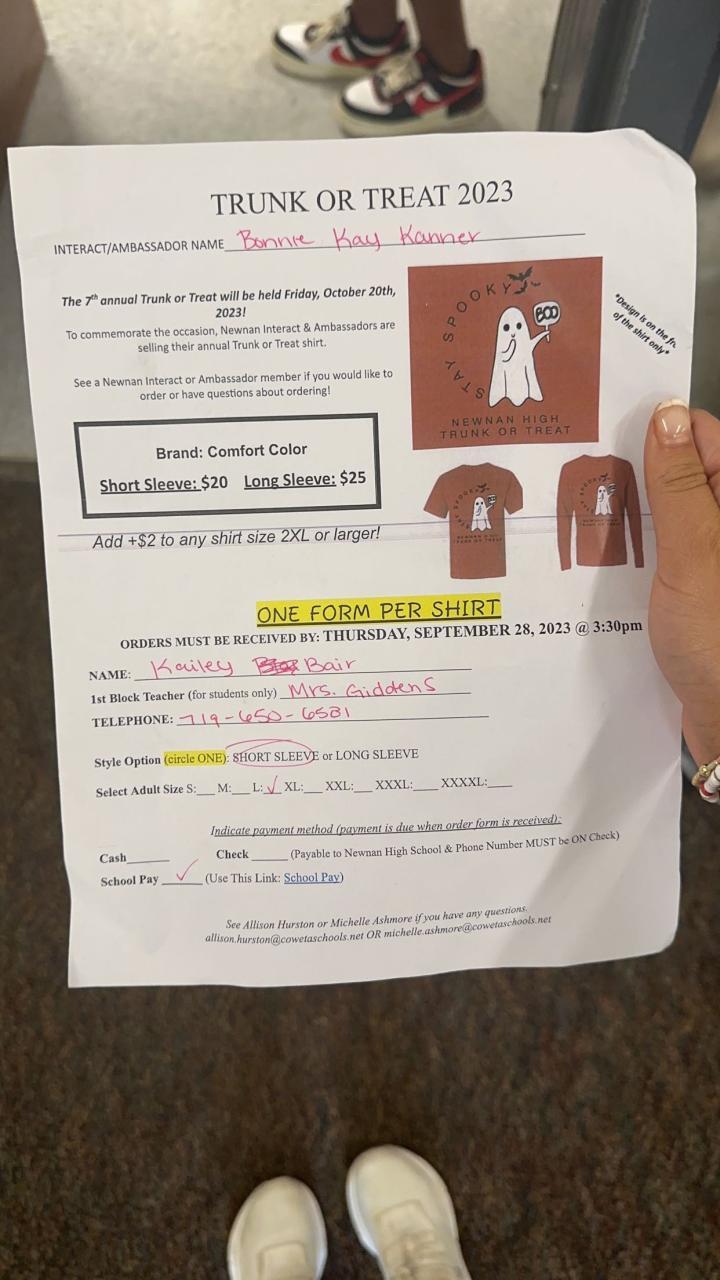 TRUNK OR TREAT 2023
INTERACT/AMBASSADOR NAME Bonnie Kay Kanner
The 7th annual Trunk or Treat will be held Friday, October 20th,
2023!
To commemorate the occasion, Newnan Interact & Ambassadors are
selling their annual Trunk or Treat shirt.
See a Newnan Interact or Ambassador member if you would like to
order or have questions about ordering!
Brand: Comfort Color
Short Sleeve: $20 Long Sleeve: $25
Add +$2 to any shirt size 2XL or larger!
STAY SPOOKY
BOO
NEWNAN HIGH
TRUNK OR TREAT
*Design is on the
of the shirt only*
ONE FORM PER SHIRT
ORDERS MUST BE RECEIVED BY: THURSDAY, SEPTEMBER 28, 2023 @ 3:30pm
NAME: Kailey Bair
1st Block Teacher (for students only) Mrs. Giddens
TELEPHONE: 719-650-6581
Style Option (circle ONE): SHORT SLEEVE or LONG SLEEVE
Select Adult Size S:___ M:___ L:✓ XL:___ XXL:___ XXXL:___ XXXXL:___
Indicate payment method (payment is due when order form is received):
Cash______ Check _____ (Payable to Newnan High School & Phone Number MUST be ON Check)
School Pay ✓ (Use This Link: School Pay)
See Allison Hurston or Michelle Ashmore if you have any questions.
allison.hurston@cowetaschools.net OR michelle.ashmore@cowetaschools.net